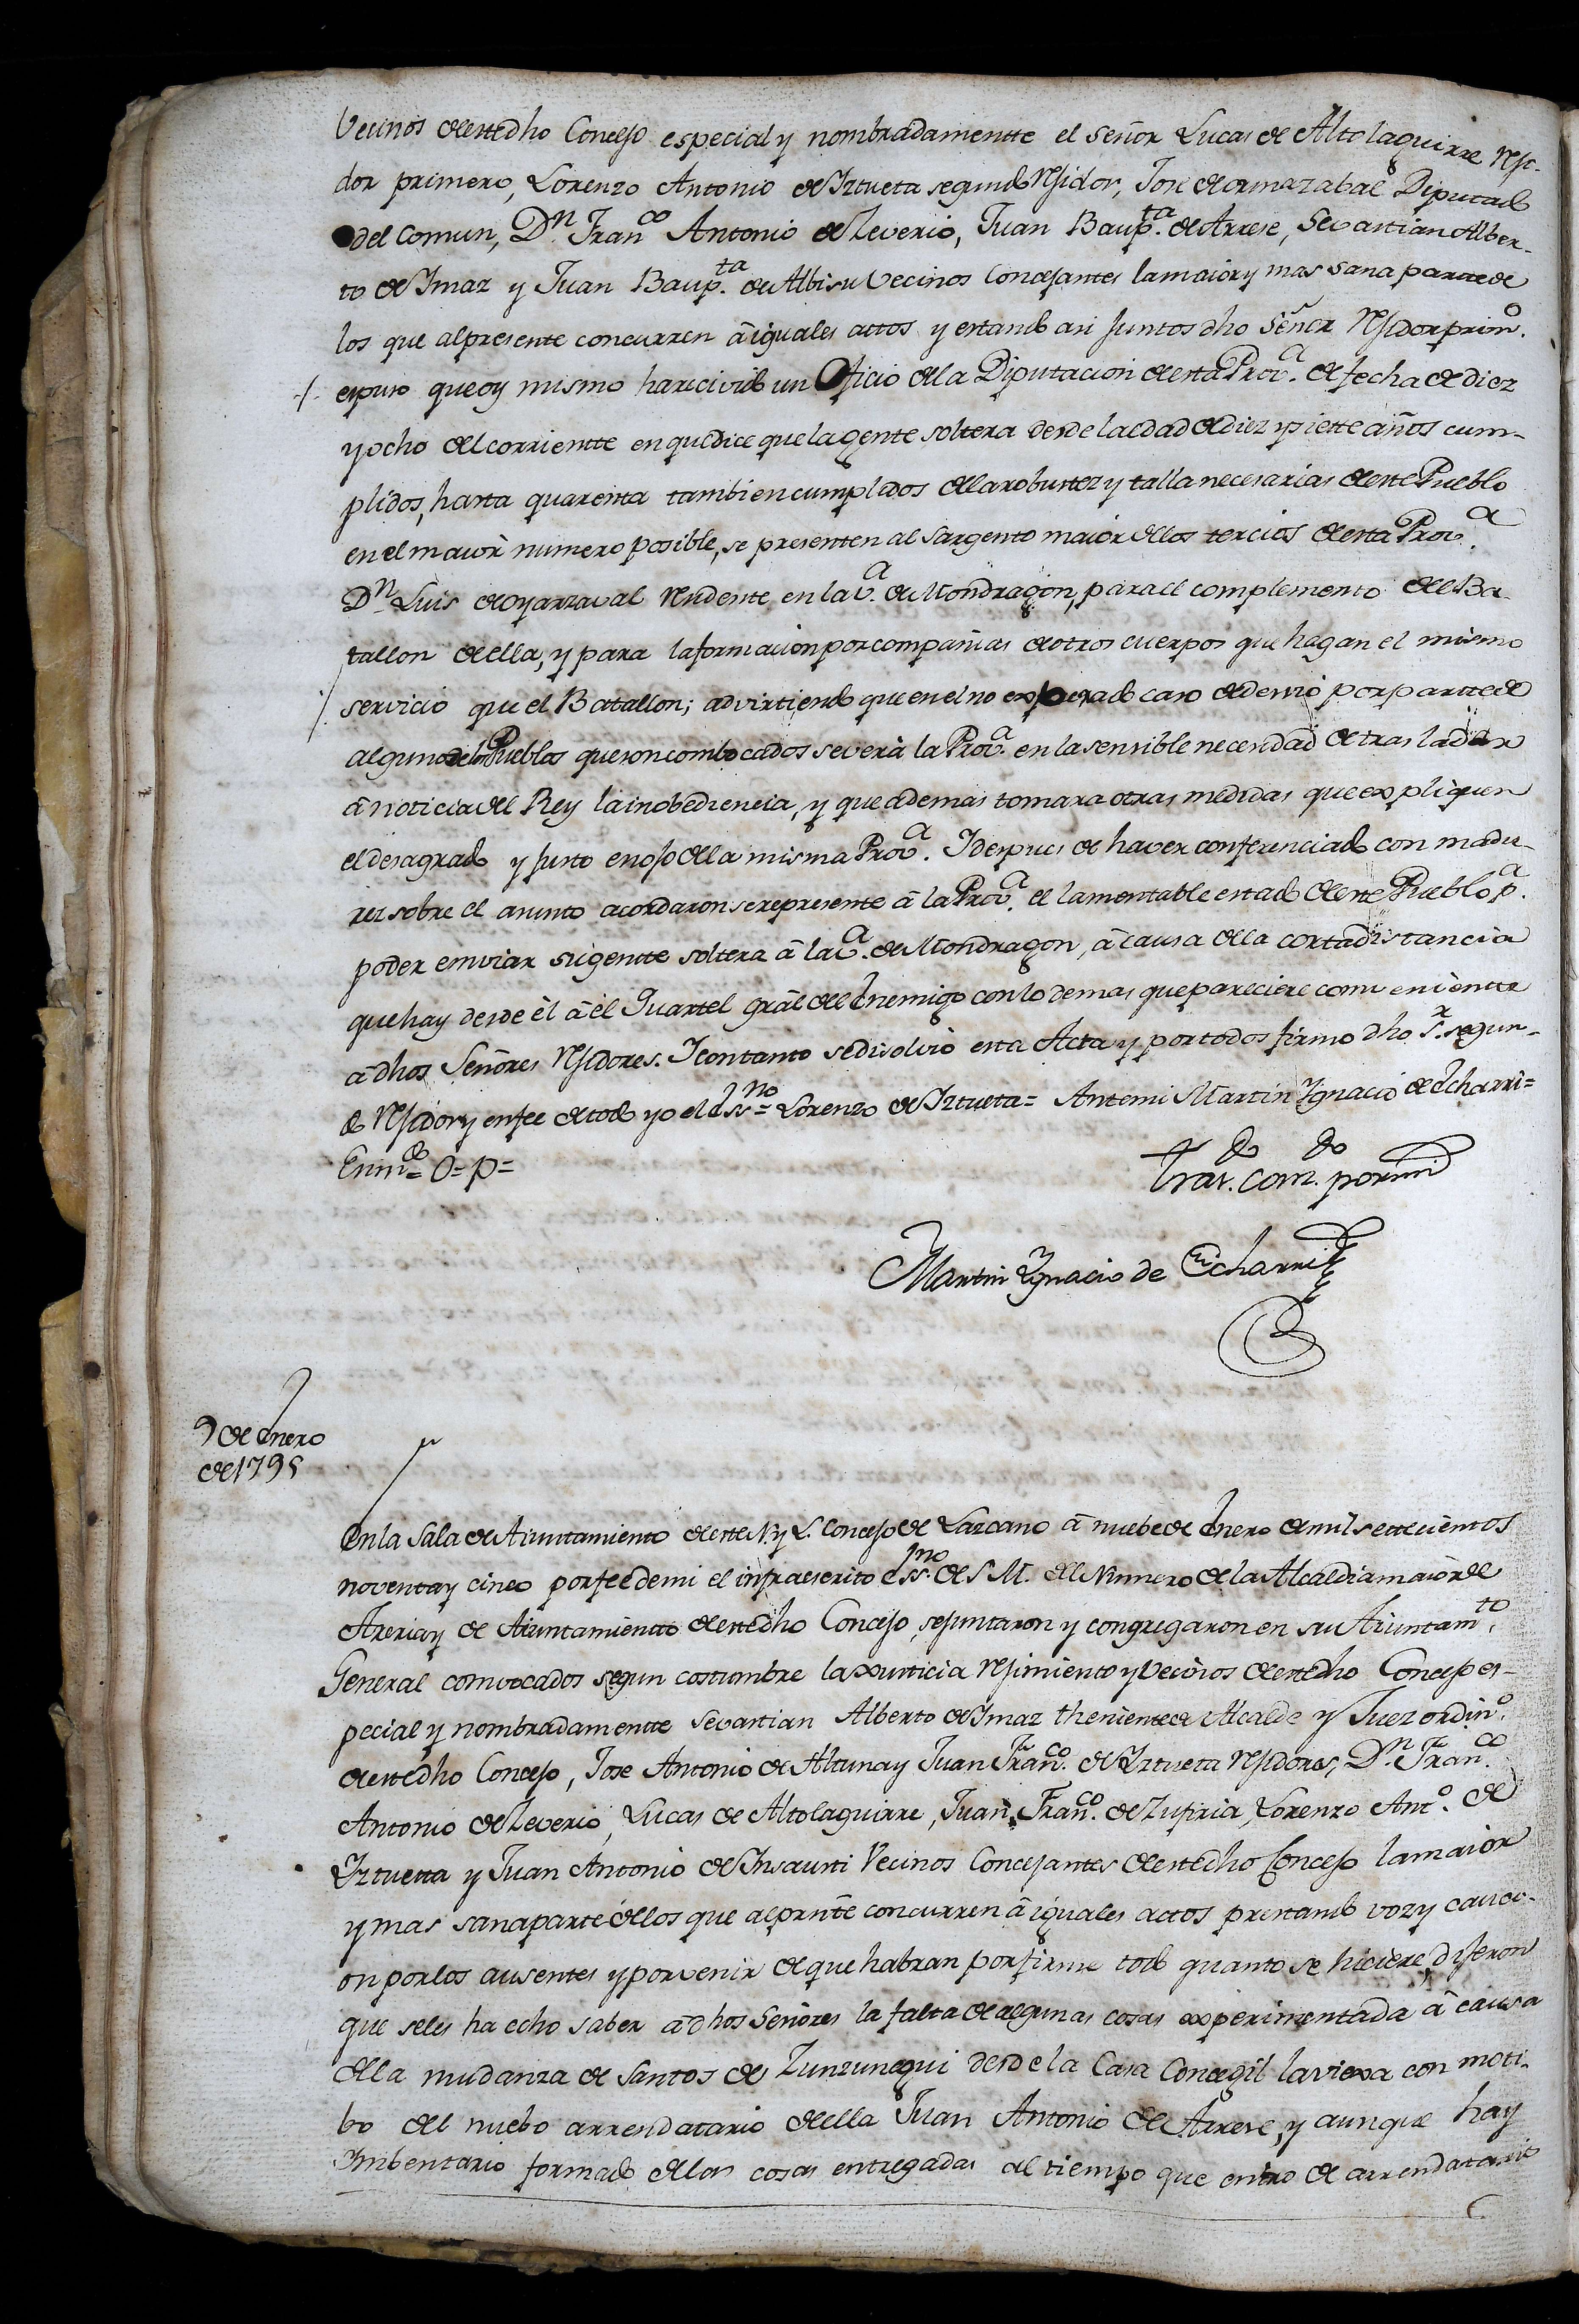 Vecinos de estedho Concejo especial y nombradamentte el señor Lucas de Altolaguirre reji-
dor primero, Lorenzo Antonio de Yztueta segundo rejidor, Jose de ormazabal Diputado
del Comun, Dn. Franco Antonio de Zeverio, Juan Baup.ta de Arrese, Sevastian Alber-
to de Ymaz y Juan Baup.ta de Albisu Vecinos Concejantes la maior y mas sana parte de
los que alpresente concurren â iguales attos y estando asi juntos dho Señor rejidor prim.o
espuso que oy mismo ha recivido un Oficio de la Diputacion de esta Prov.a de fecha de diez
y ocho del corrientte en que dice que la gente soltera desde la edad de diez y siette años cum-
plidos, hasta quarenta tambien cumplidos de la robustez y talla necesarias de este Pueblo
en el maior numero posible, se presenten al Sargento maior de los tercios de esta Prov.a
Dn. Luis de oyarzaval residente en la V.a de Mondragon, para el complemento del Ba-
tallon de ella, y para la formacion por compañias de otros cuerpos que hagan el mismo
servicio que el Batallon; advirtiendo que en el no esperado caso de desvio por parte de
alguno de los Pueblos que son combocados se verà la Prov.a en la sensible necesidad de trasladar
â noticia del Rey la inobediencia, y que ademas tomara otras medidas que expliquen
el desagrado y justo enojo de la misma Prov.a. Y despues de haver conferenciado con madu-
rez sobre el asunto acordaron se represente â la Prov.a el lamentable estado de este Pueblo p.a
poder enviar su gentte soltera â la V.a de Mondragon, â causa de la corta distancia
que hay desde èl â el Quartel grâl del Enemigo con lo demas que pareciere combenientte
â dhos Señores rejidores. Y con tanto se disolvio esta Acta y por todos firmo dho S.r segun-
do rejidor y en fee de todo yo el Essno = Lorenzo de Yztueta = Antemi Martin Ygnacio de Echarri =
Enm.do = O = p =
Tras.do Com.do por mi
Martin Ygnacio de Echarri
9 de Enero
de 1795
En la Sala de Aiuntamiento de este N. y L. Concejo de Lazcano â nuebe de Enero de mil settecientos
noventa y cinco por fee de mi el infraescrito Essno de S M. del Numero de la Alcaldia maior de
Areria y de Aiuntamientto de estedho Concejo, se juntaron y congregaron en su Aiuntam.to
General comvocados segun costumbre la xusticia rejimiento y Vecinos de estedho Concejo es-
pecial y nombradamentte Sevastian Alberto de Ymaz theniente de Alcalde y Juez ordin.o
de estedho Concejo, Jose Antonio de Altuna y Juan Fran.co de Yztueta rejidores, Dn. Fran.co
Antonio de Zeverio, Lucas de Altolaguirre, Juan Fran.co de Zufiria, Lorenzo Ant.o de
Yztuetta y Juan Antonio de Ynsausti Vecinos Concejantes de estedho Concejo la maior
y mas sana parte de los que al prnte concurren â iguales actos prestando voz y cauci-
on por los ausentes y por venir de que habran por firme todo quanto se hiciere, dijeron
que seles ha echo saber â dhos Señores la falta de algunas cosas experimentada â causa
de la mudanza de Santos de Zunzunegui desde la Casa Concegil la viexa con moti-
bo del nuebo arrendatario de ella Juan Antonio de Arrese, y aunque hay
Ymbentario formado de las cosas entregadas al tiempo que entro de arrendatario